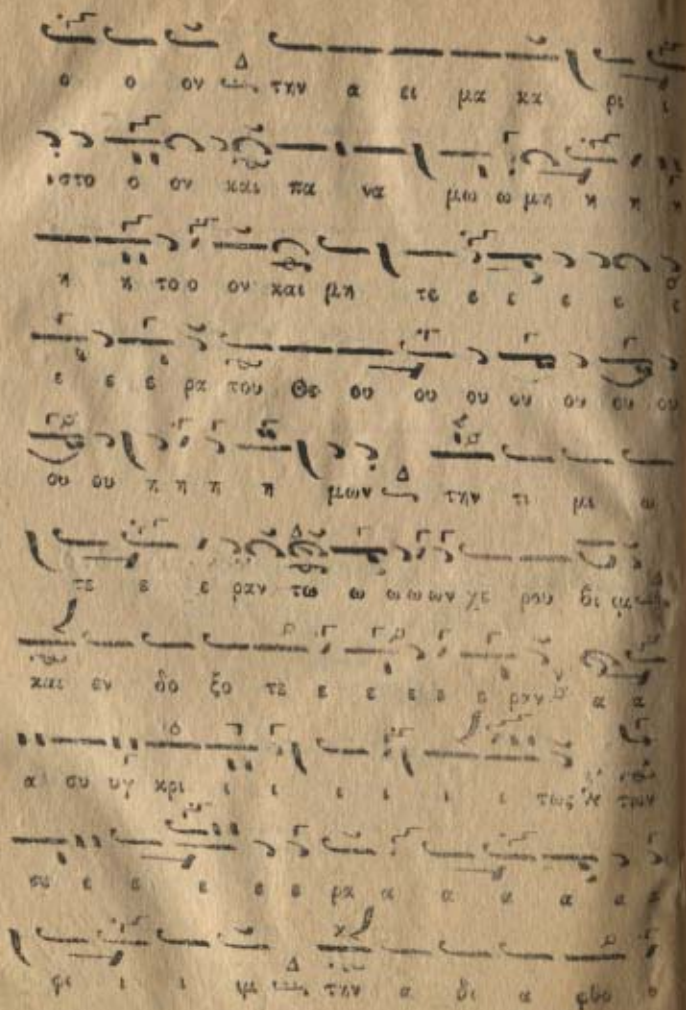 ο ο ον την α ει μα κα ρι ι
ι στο ο ον και πα να μω ω μη η η η
η η το ο ον και μη τε ε ε ε ε ε
ε ε ε ρα του Θε ου ου ου ου ου ου ου
ου ου η η η η μων την τι μι ω
τε ε ε ραν τω ω ω ω ων χε ρου βι
και εν δο ξο τε ε ε ε ε ε ραν α α
α συ υγ κρι ι ι ι ι ι ι τως των
σε ε ε ε ε ε ρα α α α α α α
φι ι ι ιμ την α δι α φθο ο